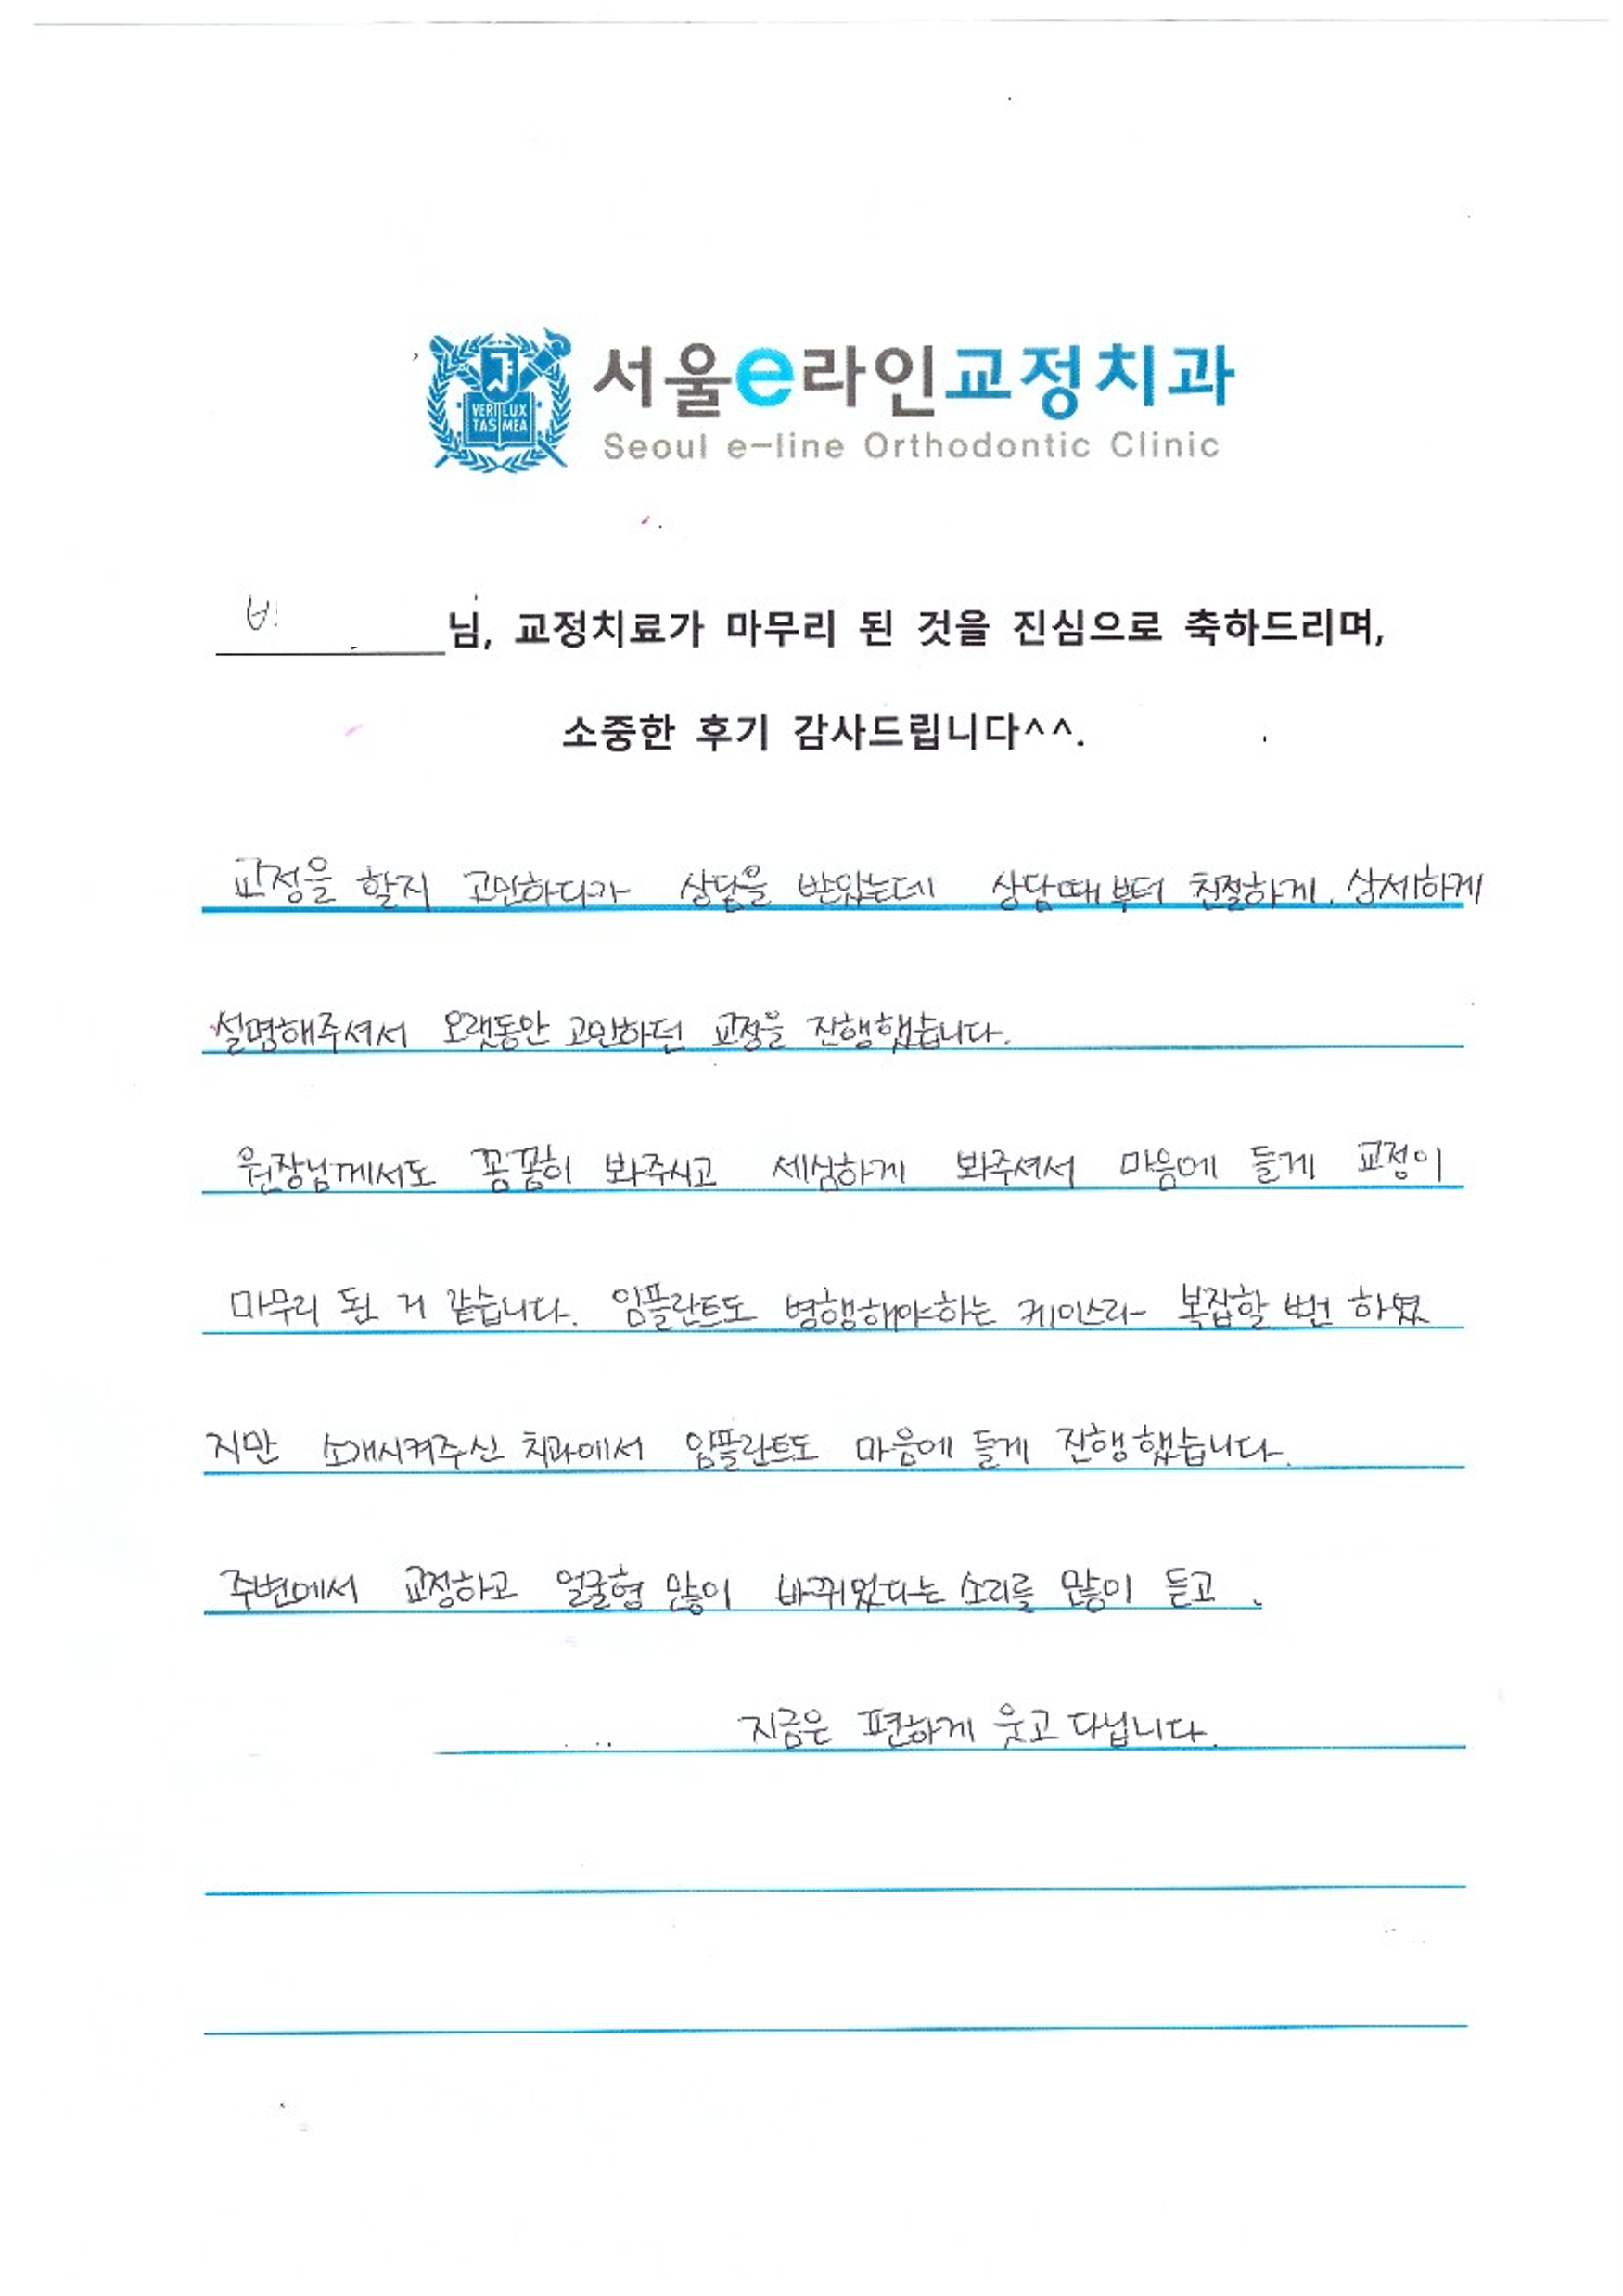 VERI LUX
TAS MEA
서울e라인교정치과
Seoul e-line Orthodontic Clinic
님, 교정치료가 마무리 된 것을 진심으로 축하드리며,
소중한 후기 감사드립니다^^.
교정을 할지 고민하다가 상담을 받았는데 상담때부터 친절하게, 상세하게
설명해주셔서 오랫동안 고민하던 교정을 진행했습니다.
원장님께서도 꼼꼼히 봐주시고 세심하게 봐주셔서 마음에 들게 교정이
마무리 된 거 같습니다. 임플란트도 병행해야하는 케이스라 복잡할 뻔 하였
지만 소개시켜주신 치과에서 임플란트도 마음에 들게 진행했습니다.
주변에서 교정하고 얼굴형 많이 바뀌었다는 소리를 많이 듣고,
지금은 편하게 웃고 다닙니다.